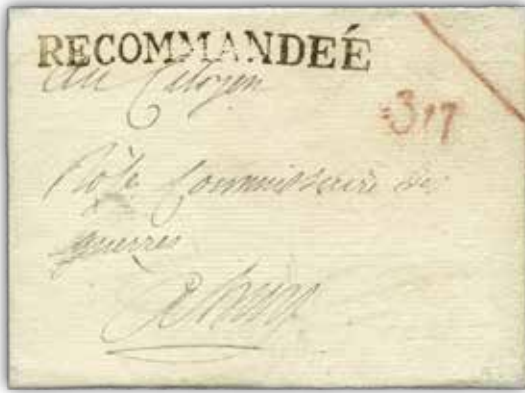 RECOMMANDEÉ
Au Citoyen
317
Commissaire des
guerres